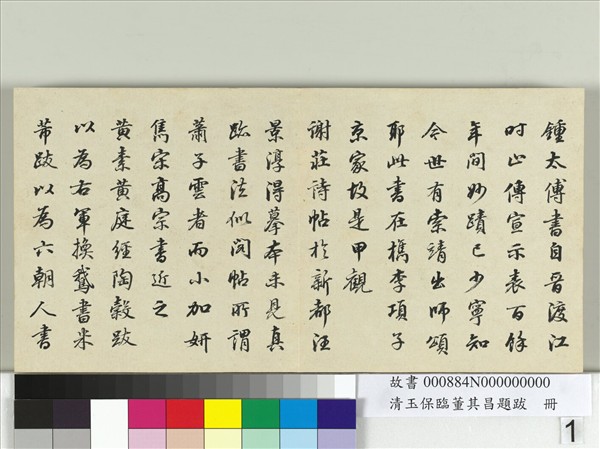 鍾太傅書自晉渡江
時止傳宣示表百餘
年間妙蹟已少寧知
今世有索靖出師頌
耶此書在檇李項子
京家故是甲觀
謝莊詩帖於新都汪
景淳得摹本未見真
跡書法似閣帖所謂
蕭子雲者而小加妍
雋宋高宗書近之
黃素黃庭經陶穀跋
以為右軍換鵝書米
芾跋以為六朝人書
故書 000884N000000000
清玉保臨董其昌題跋 冊
1